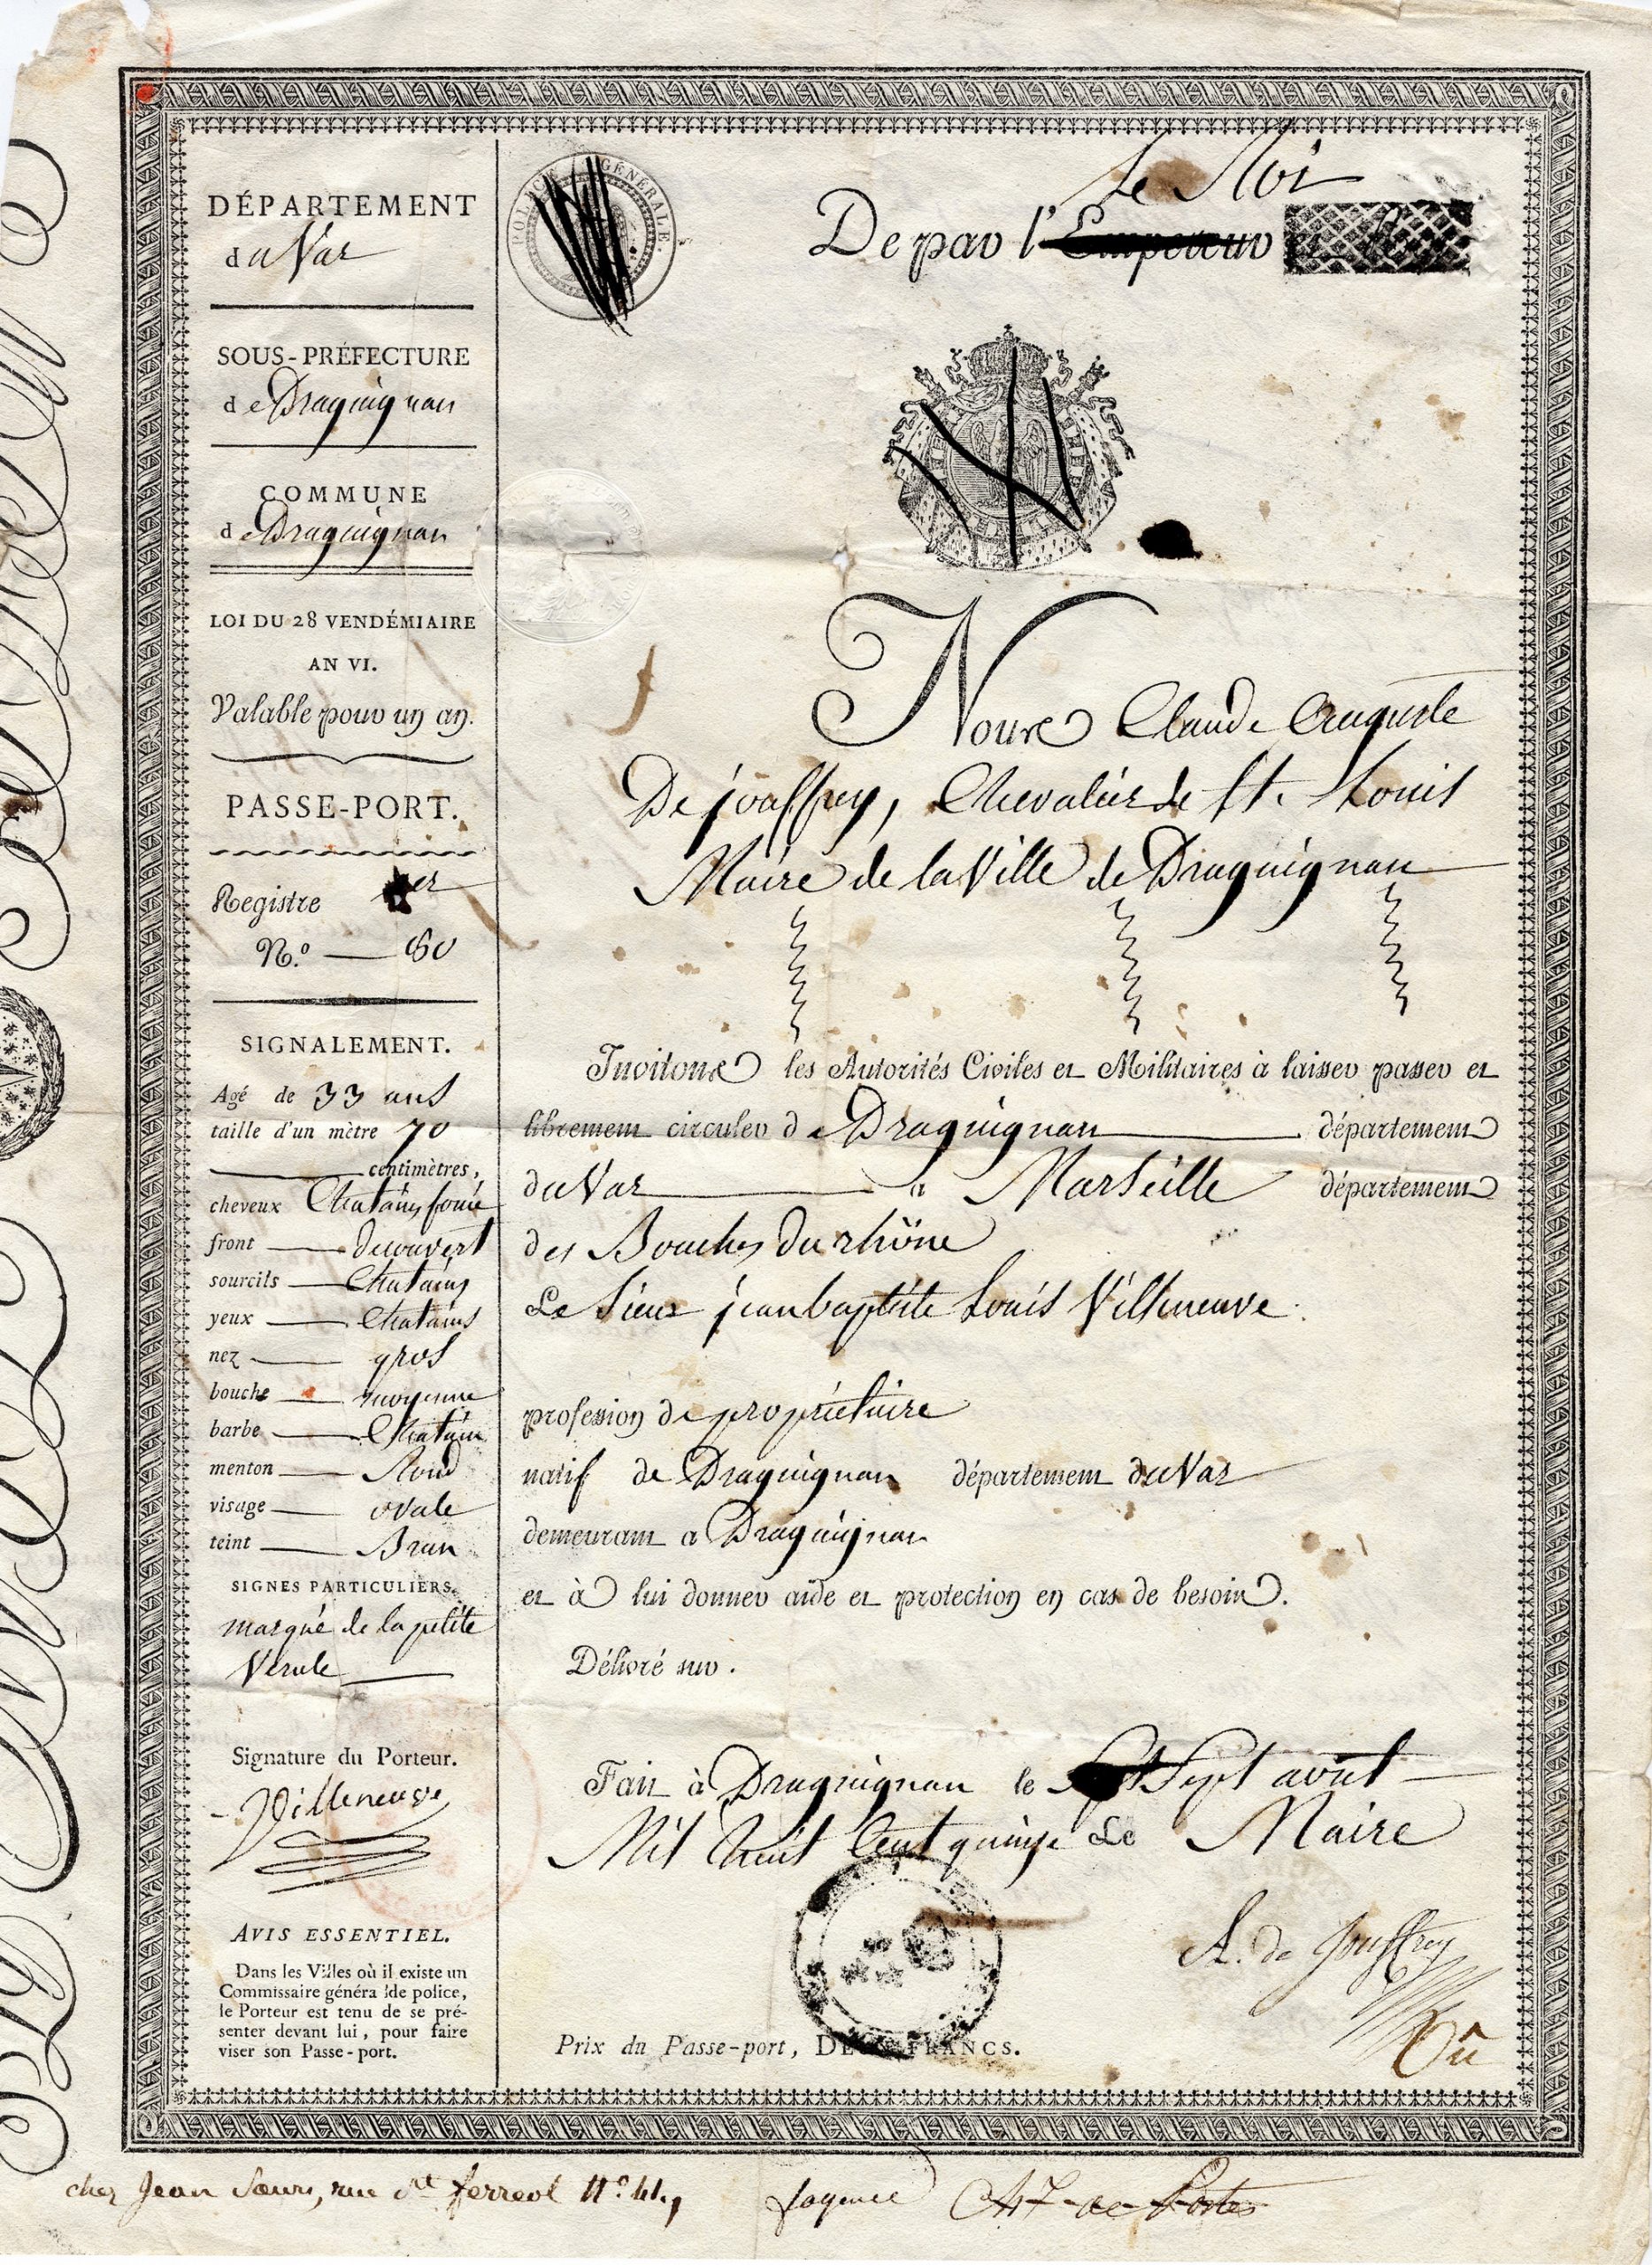 DÉPARTEMENT
du Var
SOUS-PRÉFECTURE
de Draguignan
COMMUNE
de Draguignan
LOI DU 28 VENDÉMIAIRE
AN VI.
Valable pour un an.
PASSE-PORT.
Registre 1er
N.º 60
SIGNALEMENT.
Agé de 33 ans
taille d'un mètre 70
centimètres,
cheveux Chatains foncé
front decouvert
sourcils Chatains
yeux Chatains
nez gros
bouche moyenne
barbe Chatain
menton Rond
visage ovale
teint Brun
SIGNES PARTICULIERS.
marqué de la petite
Verole
Signature du Porteur.
Villeneuve
AVIS ESSENTIEL.
Dans les Villes où il existe un
Commissaire généra lde police,
le Porteur est tenu de se pré-
senter devant lui, pour faire
viser son Passe-port.
POLICE GÉNÉRALE.
Le Roi
De par l'Empereur
Nous Claude Auguste
De jouffrey, Chevalier de St. Louis
Maire de la Ville de Draguignan
Invitons les Autorités Civiles et Militaires à laisser passer et
librement circuler de Draguignan département
du Var a Marseille département
des Bouches du rhône
Le Sieur jean baptiste Louis Villeneuve.
profession de propriétaire
natif de Draguignan département du Var
demeurant a Draguignan
et à lui donner aide et protection en cas de besoin.
Délivré sur.
Fait à Draguignan le Sept août
Mil huit Cent quinze Le Maire
A. de Jouffrey
Prix du Passe-port, DEUX FRANCS.
chez Jean Sœurs, rue St ferreol n° 41,